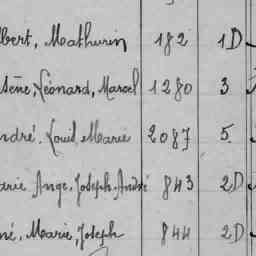 lbert, Mathurin 182 1D
sène, Léonard, Marcel 1280 3
ndré, Louis Marie 2087 5
arie, Ange, Joseph, André 843 2D
né, Marie, Joseph 844 2D